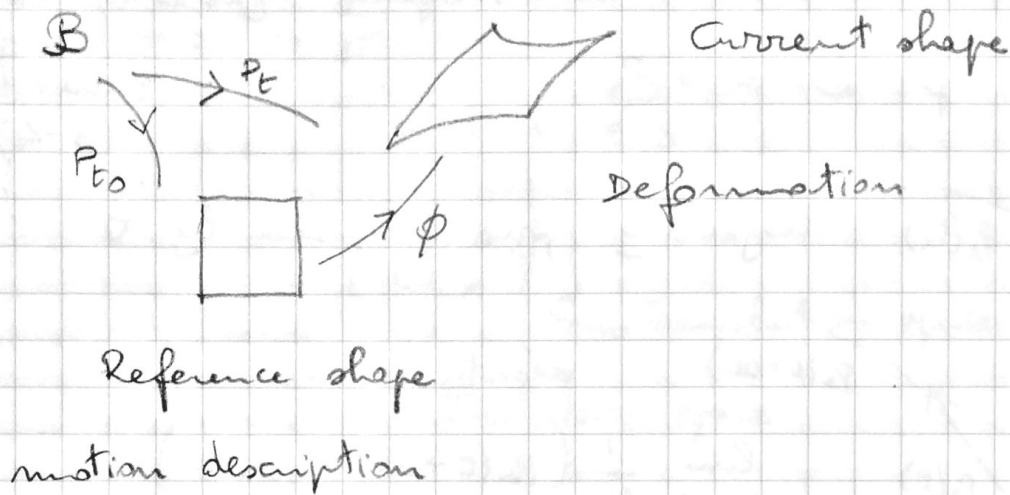 B
Current shape
P_t
P_t₀
Deformation
ϕ
Reference shape
motion description